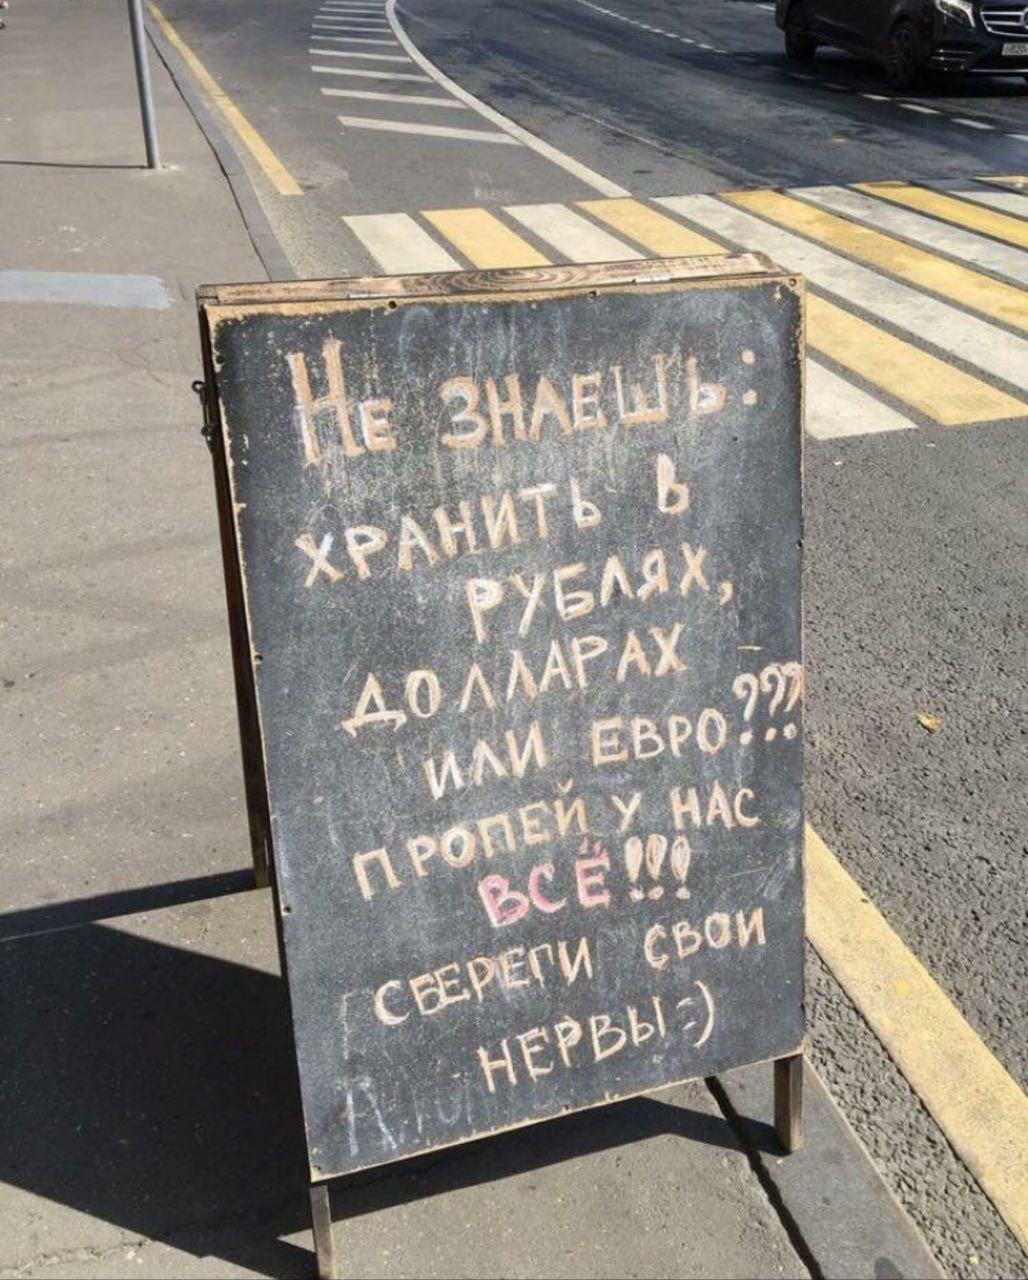 Не знаешь:
хранить в
рублях,
долларах
или евро???
пропей у нас
всё!!!
сбереги свои
нервы=)